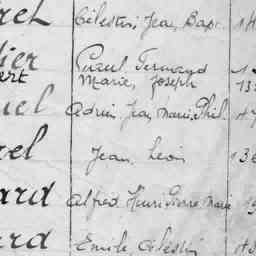 rel Célestin, Jea, Bap. 14
ier Paul Fernand
ert Marie, Joseph 13
uel Adrien Jean Marie Phil. 47
rel Jean Léon 136
ard Alfred, Henri Pierre Marie 19
ard Emile, Célestin